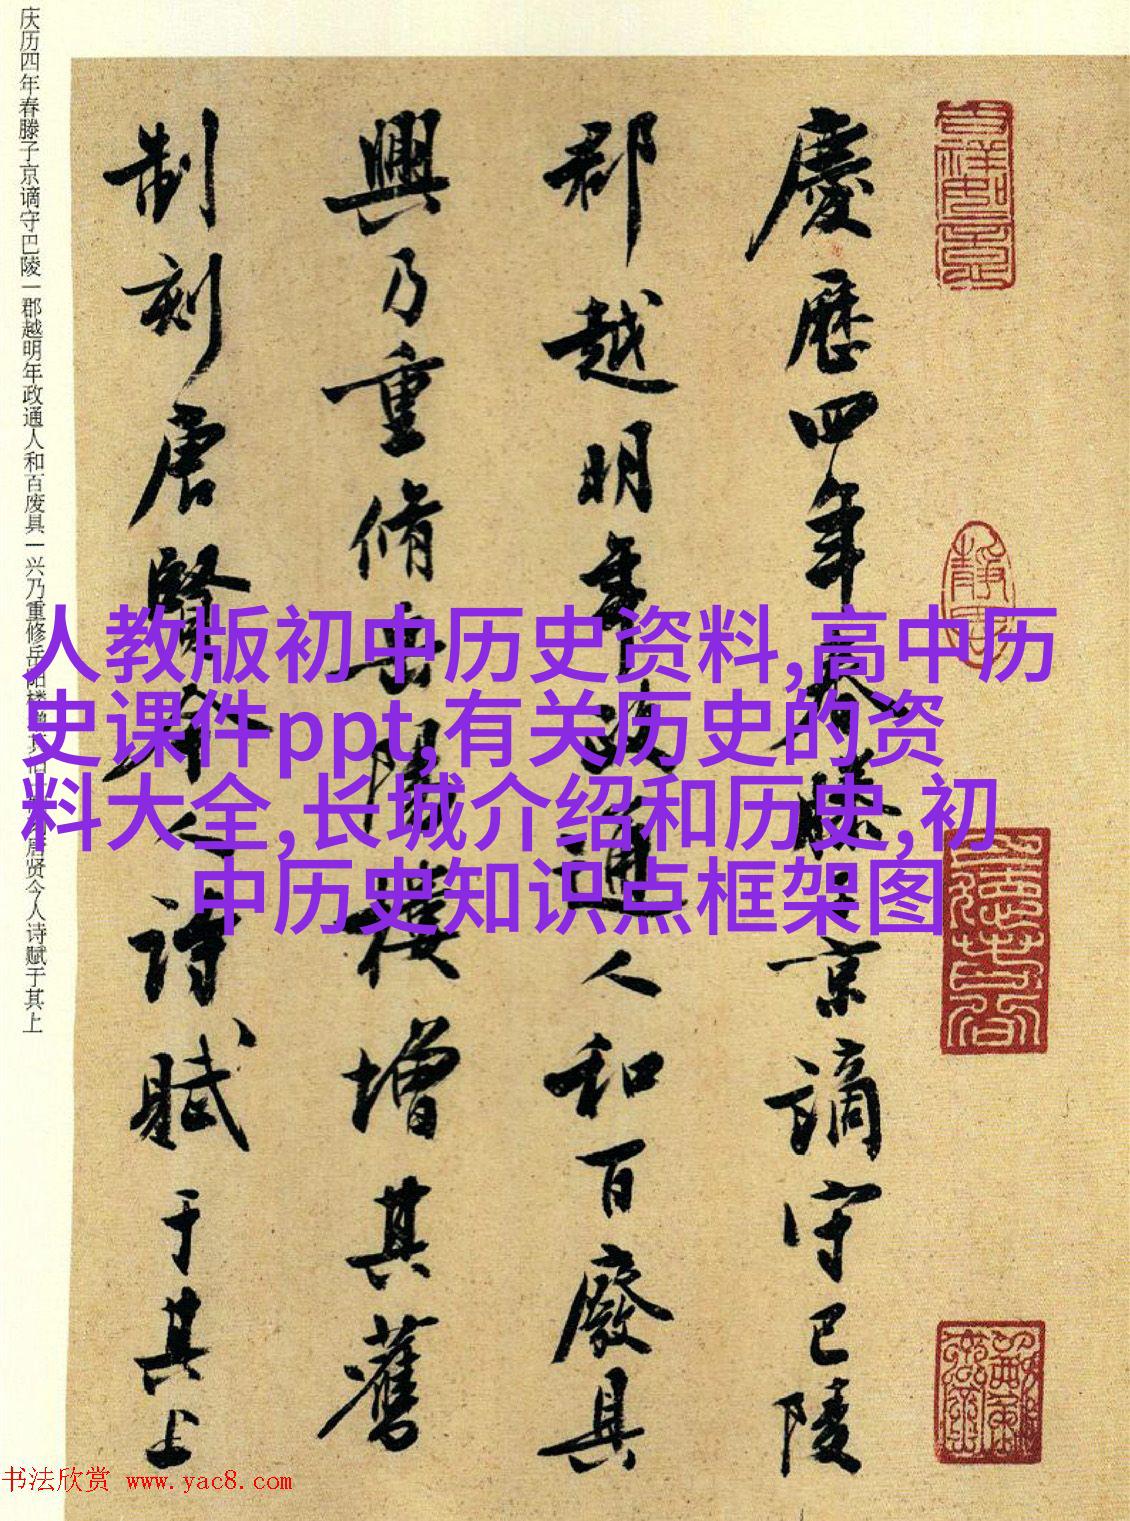 慶歷四年春滕子京謫守巴陵
郡越明年政通人和百廢具
興乃重脩岳陽樓增其舊
制刻唐賢今人詩賦于其上
庆历四年春滕子京谪守巴陵一郡越明年政通人和百废具一兴乃重修岳阳楼增其旧一制刻唐贤今人诗赋于其上
人教版初中历史资料,高中历
史课件ppt,有关历史的资
料大全,长城介绍和历史,初
中历史知识点框架图
书法欣赏 www.yac8.com